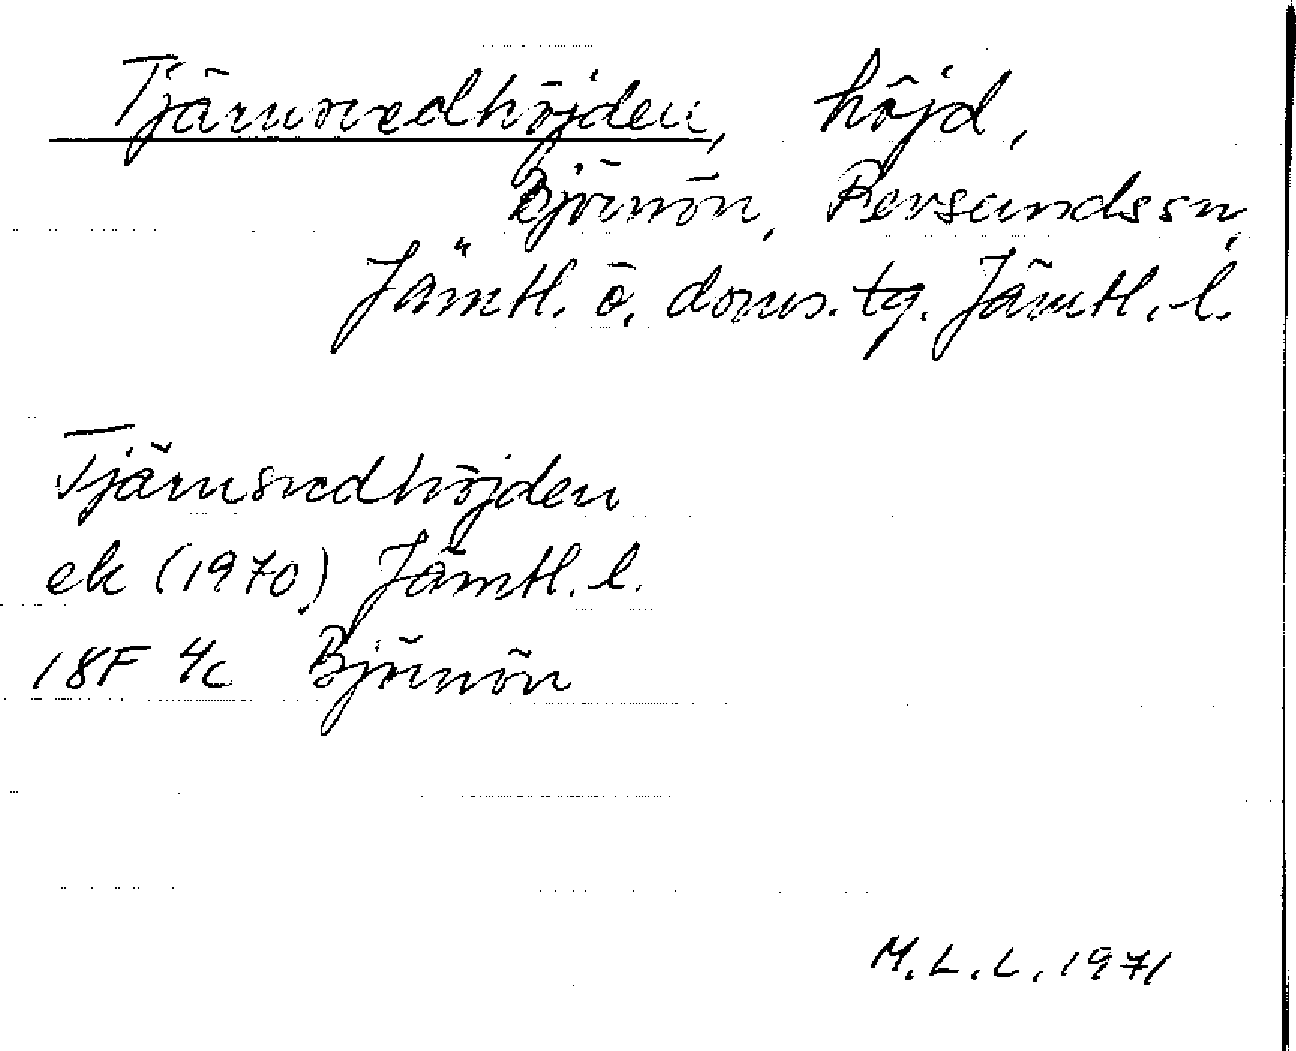 Tjärnsvedhöjden, höjd,
Björnön, Revsundssn,
Jämtl. ö. doms. tg. Jämtl. l.
Tjärnsvedhöjden
ek (1970) Jämtl. l.
18F 4c Björnön
M.L.L. 1971